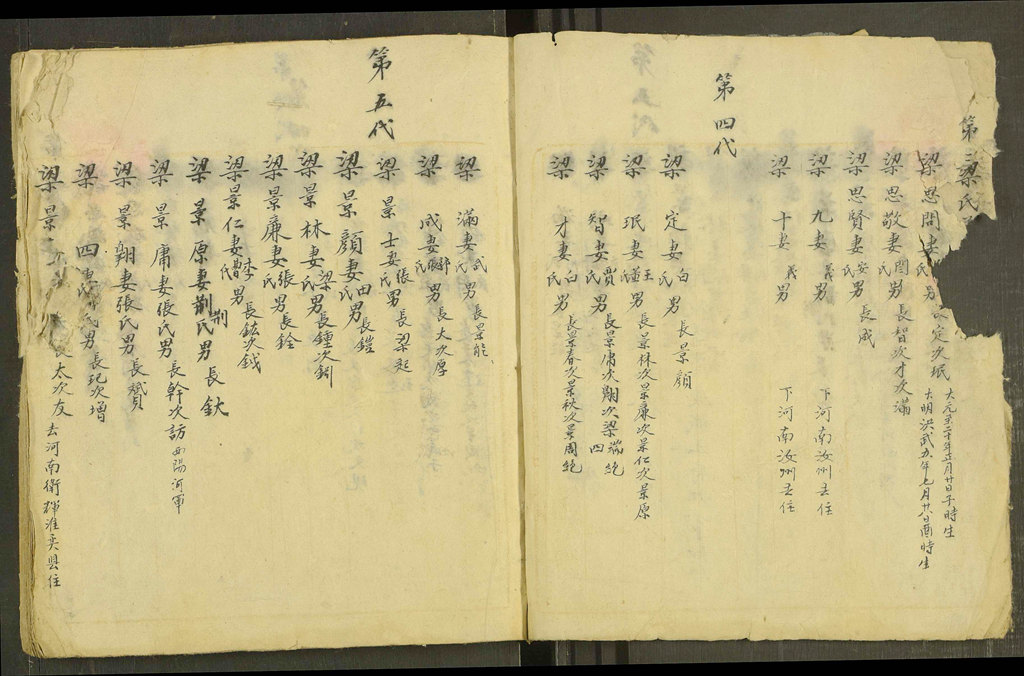 第三
梁氏
梁思問妻氏男定次珉
大元至二十年正月廿日子時生
大明洪武五年七月廿八日酉時生
梁思敬妻閆氏男長智次才次滿
梁思賢妻安氏男長咸
梁九妻氏男下河南汝州去住
梁十妻氏男下河南汝州去住
第四代
梁定妻白氏男長景顔
梁珉妻王氏男長景林次景廉次景仁次景原
梁智妻賈氏男長景庸次翱次梁四
梁才妻白氏男長景春次景秋次景周絶
第五代
梁滿妻武氏男長景能
梁咸妻氏男長大次厚
梁景士妻張氏男長梁起
梁景顔妻田氏男長鎧
梁景林妻梁氏男長鍾次釗
梁景廉妻張氏男長銓
梁景仁妻李氏男長鋐次鉞
梁景原妻荆氏男長鈦
梁景庸妻張氏男長幹次訪
梁景翱妻張氏男長贇
梁四妻氏男長玘次增
梁景太次友去河南衛輝淮县住